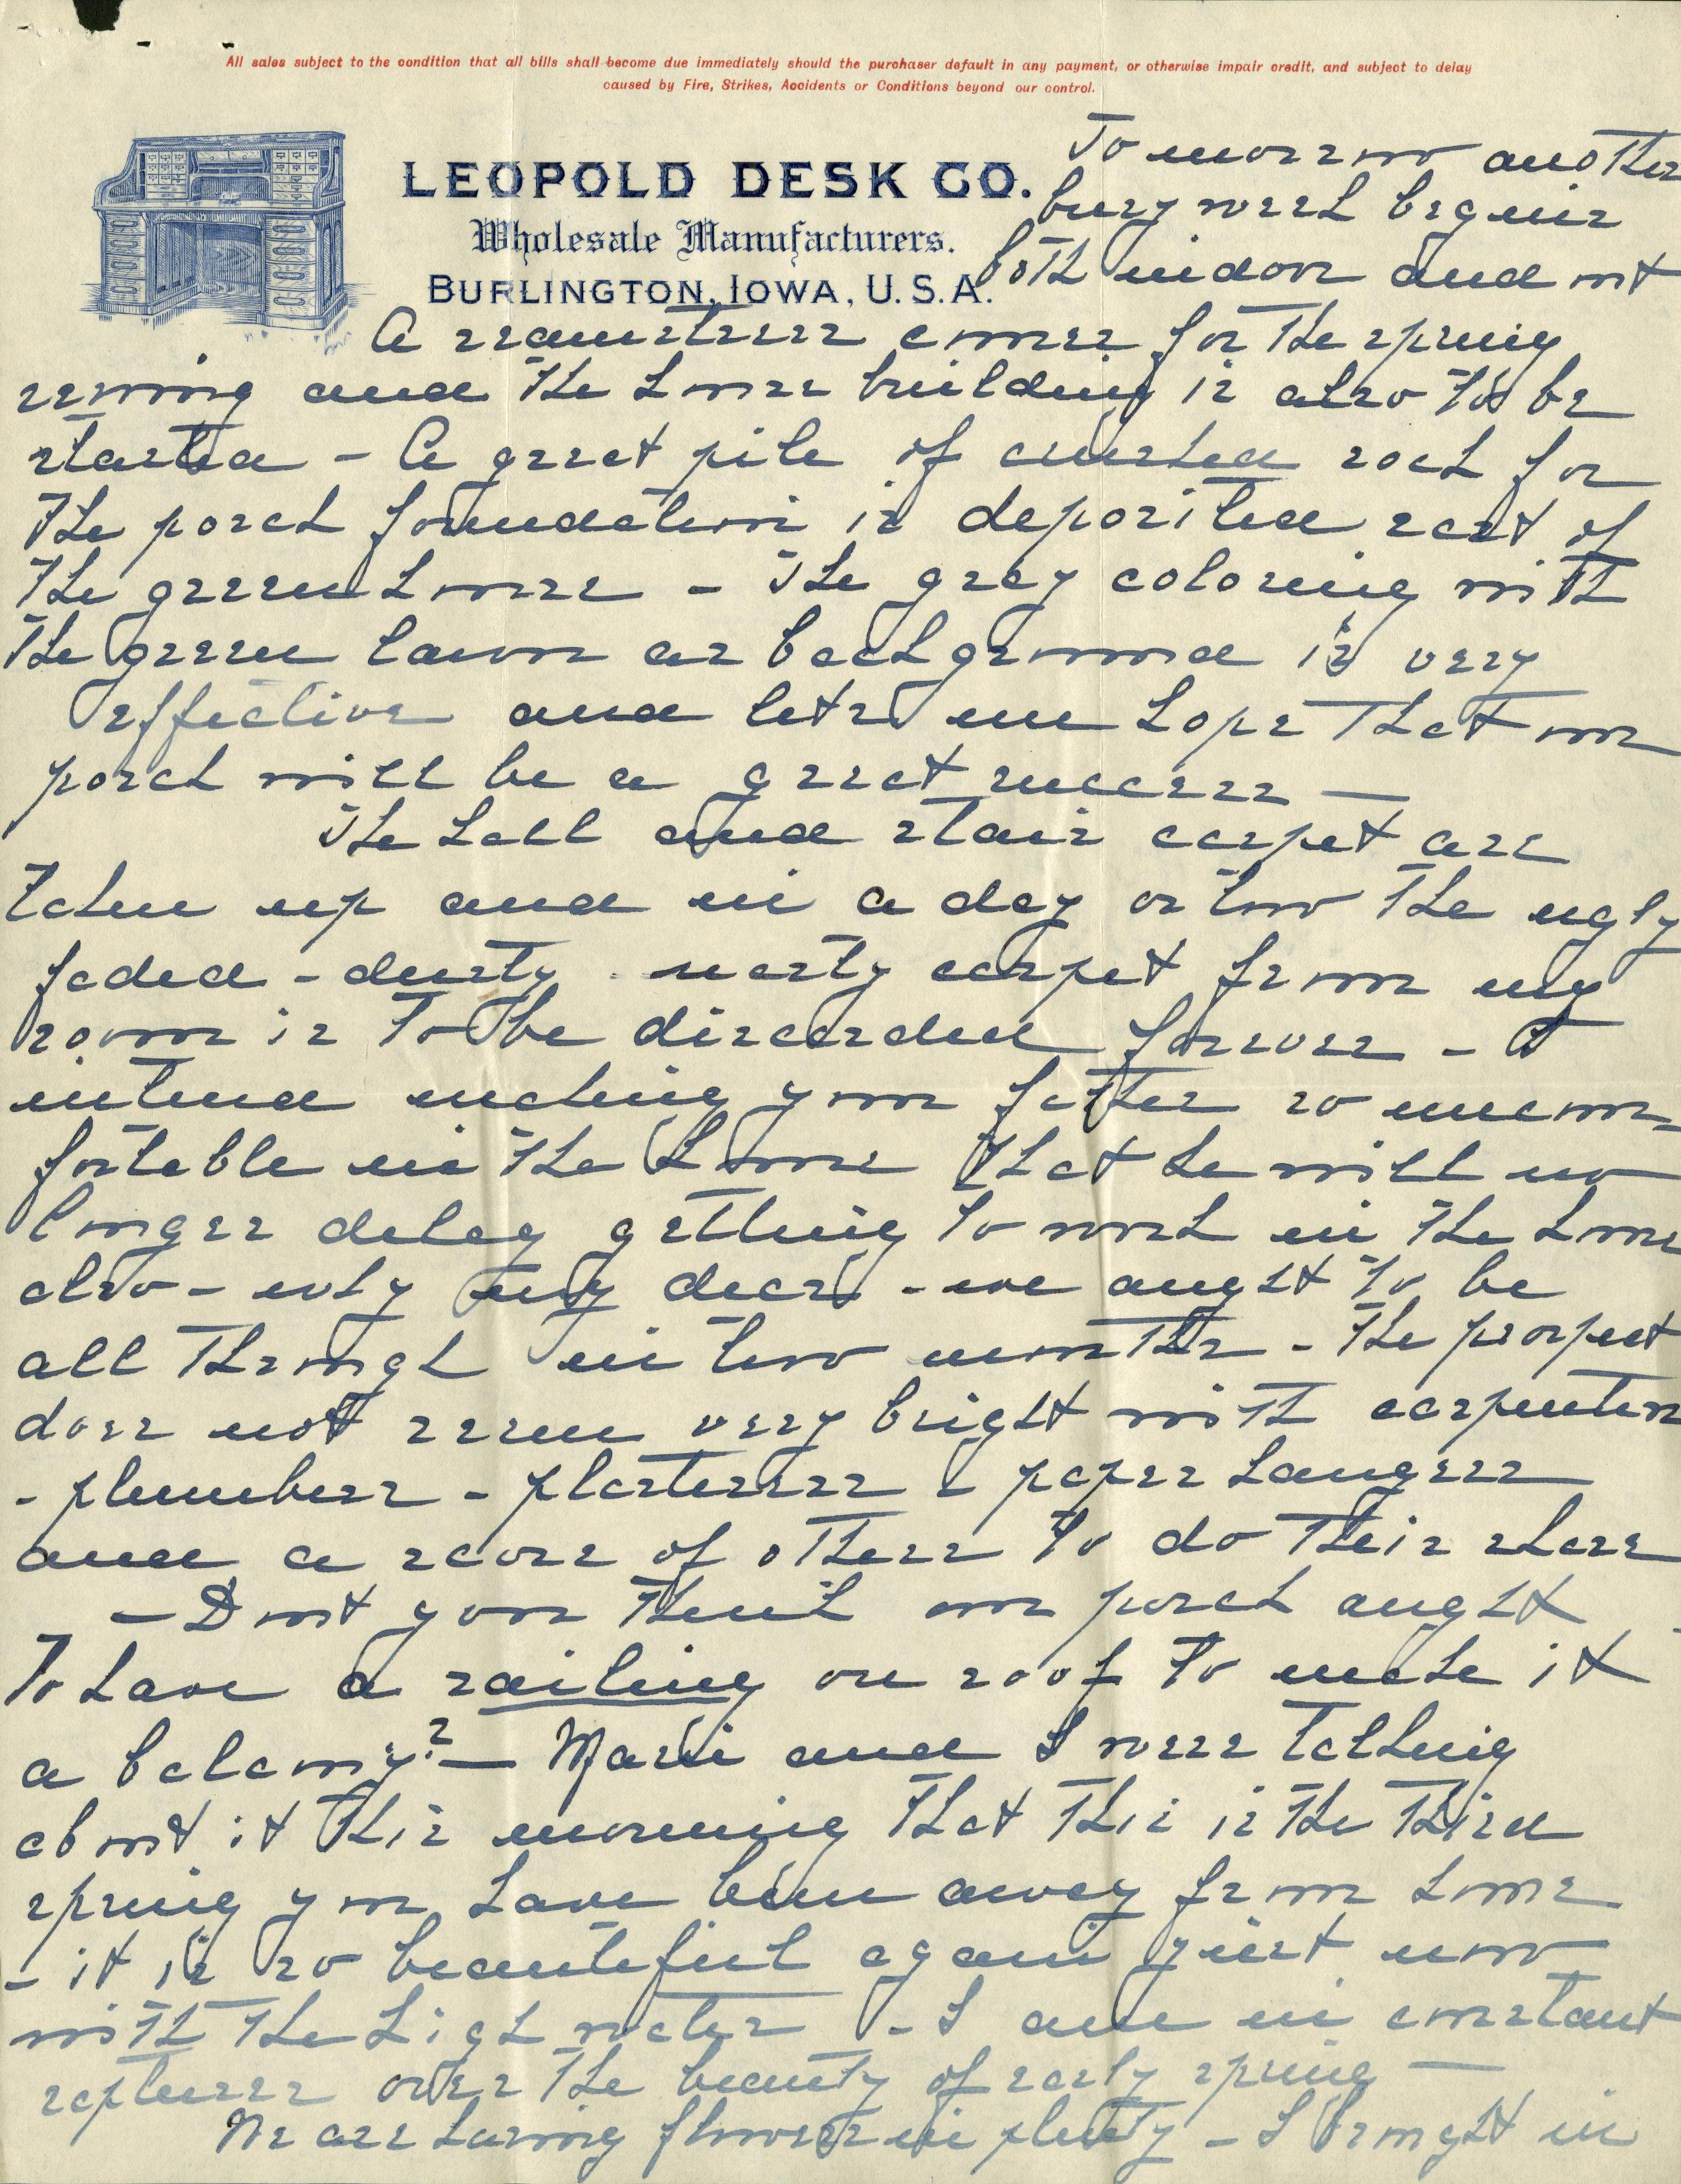 All sales subject to the condition that all bills shall become due immediately should the purchaser default in any payment, or otherwise impair credit, and subject to delay
caused by Fire, Strikes, Accidents or Conditions beyond our control.
LEOPOLD DESK CO.
Wholesale Manufacturers.
BURLINGTON, IOWA, U.S.A.
To morrow another
busy week begins
both indoor and out
A seamstress comes for the spring
sewing and the house building is also to be
started - A great pile of crushed rock for
the porch foundation is deposited east of
the green house - The gray coloring with
the green lawn as back ground is very
effective and lets me hope that our
porch will be a great success -
The hall and stair carpet are
taken up and in a day or two the ugly
faded - dusty - nasty carpet from my
room is to be discarded forever - I
intend making your father so uncom-
fortable in the house that he will no
longer delay getting to work in the house
also - why my dears - we aught to be
all through in two months - The prospect
does not seem very bright with carpenters
- plumbers - plasterers & paper hangers
and a score of others to do their share
- Dont you think our porch aught
to have a railing on roof to make it
a balcony? - Marie and I were talking
about it this morning that this is the third
spring you have been away from home
- it is so beautiful again just now
with the high water - I am in constant
raptures over the beauty of early spring -
We are having flowers in plenty - I brought in